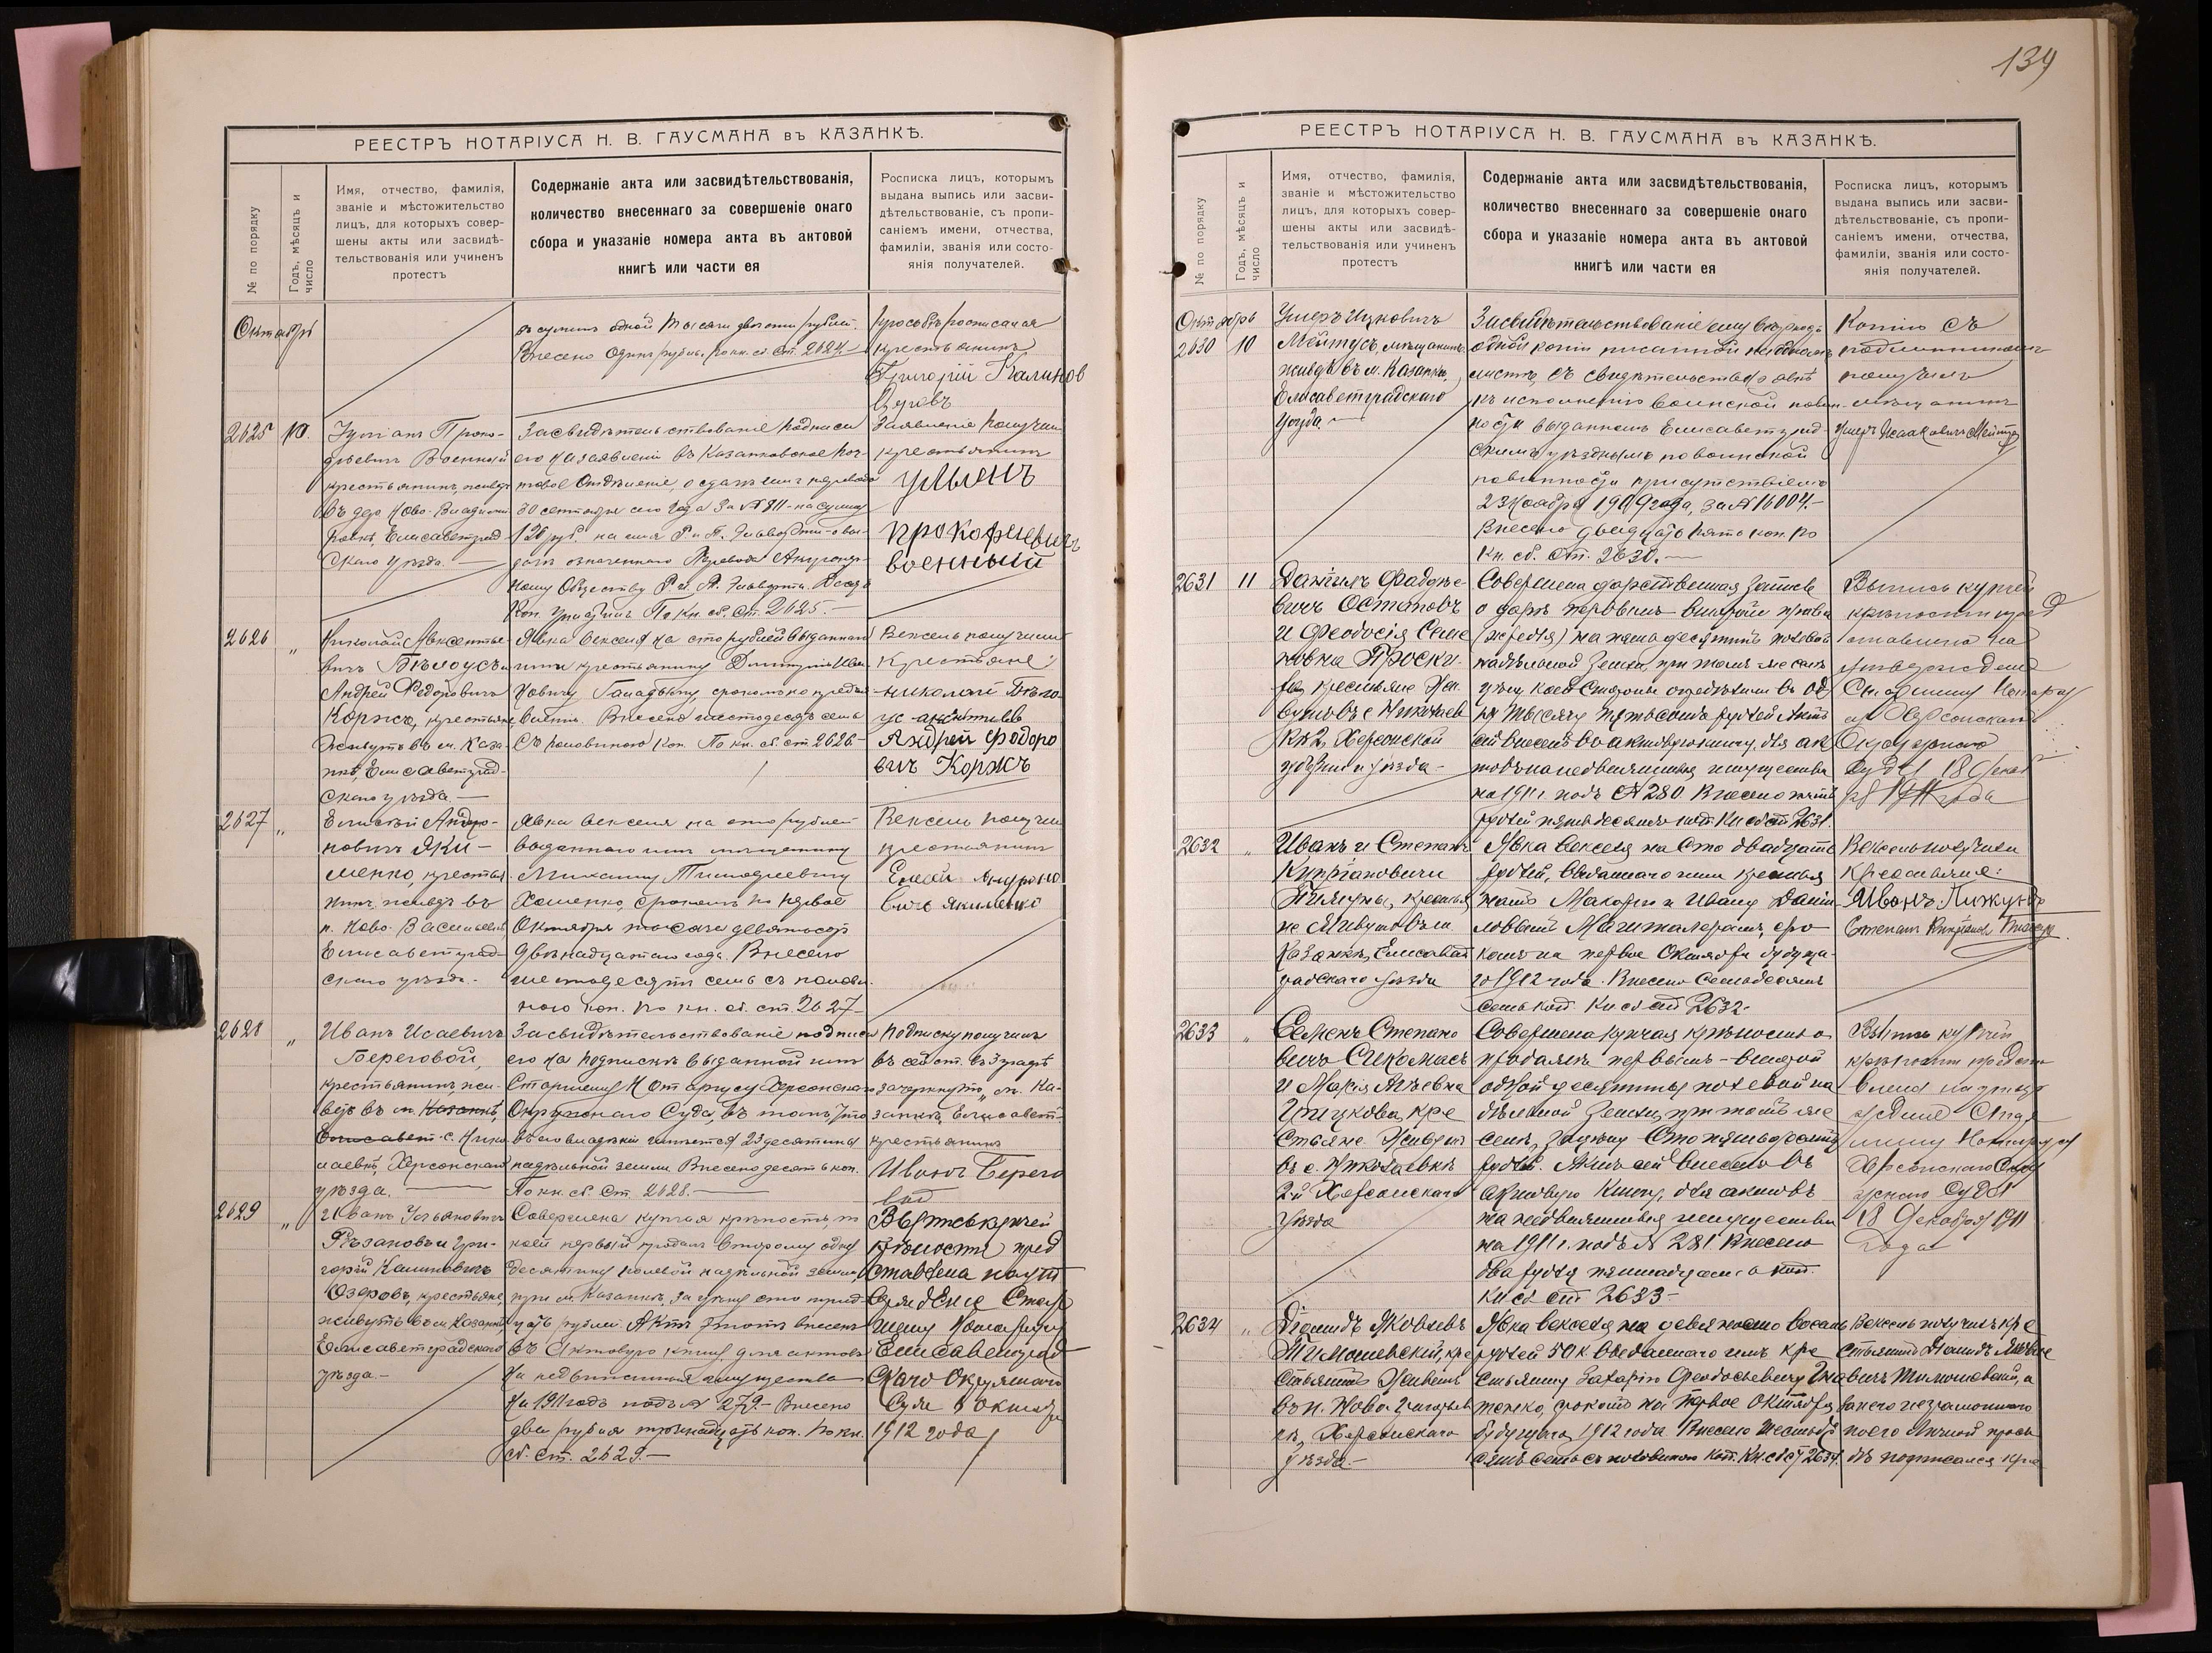 139
РЕЕСТРЪ НОТАРІУСА Н. В. ГАУСМАНА въ КАЗАНКѢ.
№ по порядку
Годъ, мѣсяцъ и число
Имя, отчество, фамилія,
званіе и мѣстожительство
лицъ, для которыхъ совер-
шены акты или засвидѣ-
тельствованія или учиненъ
протестъ
Содержаніе акта или засвидѣтельствованія,
количество внесеннаго за совершеніе онаго
сбора и указаніе номера акта въ актовой
книгѣ или части ея
Росписка лицъ, которымъ
выдана выпись или засви-
дѣтельствованіе, съ пропи-
саніемъ имени, отчества,
фамиліи, званія или состо-
янія получателей.
Октябрь
въ суммѣ одной тысячи двѣсти рублей.
Внесено одинъ рубль. По кн. сб. ст. 2624.
крестьянинъ
Григорій Калинов
2625
10.
Проко-
фьевичъ Военный
крестьянинъ, живетъ
въ дер. Ново-Владими-
ровкѣ, Елисаветград-
скаго уѣзда.
Засвидѣтельствованіе подписи
его на заявленіи въ Казанковское поч-
товое Отдѣленіе, о
30 сентября сего года за № 811 на сумму
120 руб. на имя Р. и Т. Эльворти о вы-
дачѣ означеннаго перевода Акціонер-
ному Обществу Р. и Т. Эльворти. Десять
коп. уплатилъ. По кн. сб. ст. 2625.
Заявленіе получилъ
крестьянинъ
ульянъ
прокофиевичъ
военный
2626
"
Николай Авксентье-
вичъ Бѣлоусъ и
Андрей Федоровичъ
Коржъ, крестьяне
живутъ въ м. Каза-
нкѣ, Елисаветград-
скаго уѣзда.
Явка векселя на сто рублей выданнаго
ими крестьянину Дмитрію Ива-
новичу срокомъ по предъя-
вленію. Внесено шестьдесятъ семь
съ половиною коп. По кн. сб. ст. 2626.
Вексель получили
Крестьяне:
николай Бѣло
ус
Андрей Фодоро
вич Коржъ
2627
"
Елисѣй Андро-
новичъ Яки-
менко, крестья-
нинъ, живетъ въ
п. Ново-Васильевкѣ
Елисаветград-
скаго уѣзда.
Явка векселя на сто рублей
выданнаго имъ мѣщанину
Михаилу Тимофеевичу
Хоменко, срокомъ по первое
Октября тысяча девятьсотъ
двѣнадцатаго года. Внесено
шестьдесятъ семь съ полови-
ною коп. по кн. сб. ст. 2627
Вексель получилъ
крестьянинъ
Елесей Андроно
вичъ Якименко
2628
"
Иванъ Исаевичъ
Береговой,
крестьянинъ, жи-
ветъ въ м. Казанкѣ,
Елисавет. с. Нико-
лаевкѣ, Херсонскаго
уѣзда.
Засвидѣтельствованіе подписи
его на подпискѣ выданной имъ
Старшему Нотаріусу Херсонскаго
Окружнаго Суда, въ томъ, что
въ его владѣніи имѣется 23 десятины
надѣльной земли. Внесено десять коп.
По кн. сб. ст. 2628.
Подписку получилъ
въ сей ст. въ 3 графѣ
зачеркнуто „м. Ка-
занкѣ, Елисавет-
крестьянинъ
Иванъ Берего
вой
2629
"
Иванъ Ульяновичъ
Рѣзановъ и Гри-
горій Калиновичъ
Озеровъ, крестьяне,
живутъ въ м. Казанкѣ,
Елисаветградскаго
уѣзда.
Совершена купчая крѣпость по
коей первый продалъ второму одну
десятину полевой надѣльной земли,
при м. Казанкѣ, за цѣну сто трид-
цать рублей. Актъ этотъ внесенъ
въ Актовую книгу для актовъ
на недвижимыя имущества
на 1911 годъ подъ № 279. Внесено
два рубля тринадцать коп. по кн.
сб. ст. 2629.
Выпись купчей
крѣпости пред
ставлена на ут
вержденіе Стар
шему Нотаріусу
Елисаветград
скаго Окружнаго
Суда 8 октября
1912 года
РЕЕСТРЪ НОТАРІУСА Н. В. ГАУСМАНА въ КАЗАНКѢ.
№ по порядку
Годъ, мѣсяцъ и число
Имя, отчество, фамилія,
званіе и мѣстожительство
лицъ, для которыхъ совер-
шены акты или засвидѣ-
тельствованія или учиненъ
протестъ
Содержаніе акта или засвидѣтельствованія,
количество внесеннаго за совершеніе онаго
сбора и указаніе номера акта въ актовой
книгѣ или части ея
Росписка лицъ, которымъ
выдана выпись или засви-
дѣтельствованіе, съ пропи-
саніемъ имени, отчества,
фамиліи, званія или состо-
янія получателей.
Октябрь
2630
10
Ушеръ Ицковичъ
Мейтусъ, мѣщанинъ
живетъ въ м. Казанкѣ,
Елисаветградскаго
уѣзда.
Засвидѣтельствованіе ему вѣрности
одной копіи писанной на одномъ
листѣ, съ свидѣтельства о явкѣ
къ исполненію воинской повин-
ности выданномъ Елисаветград-
скимъ уѣзднымъ по воинской
повинности присутствіемъ
23 Ноября 1909 года, за № 16004.
Внесено двадцать пять коп. по
кн. сб. ст. 2630.
Копію съ
подлинникомъ
получилъ
мѣщанинъ
Ушеръ Исааковичъ Мейтус
2631
11
Даніилъ Фадѣе-
вичъ Остаповъ
и Феодосія Семе
новна Проску-
крестьяне Жи-
вущіе въ с Николаев
кѣ 2й, Херсонской
губерніи и уѣзда
Совершена дарственная запись
о дарѣ первымъ второй
надѣльной земли, при томъ же селѣ
цѣну коей стороны опредѣлили въ од
ну тысячу пятьсотъ рублей Актъ
сей внесенъ въ актовую книгу, для ак
товъ на недвижимыя имущества
на 1911 г. подъ № 280. Внесено
рублей пятьдесятъ коп. Кн сб ст 2631.
Выпись купчей
крѣпости пред
ставлена на
утвержденіе
Старшему Нотаріу
су Херсонскаго
Окружнаго
Суда 18 Декаб
ря 1911 года
2632
"
Иванъ и Степанъ
Купріановичи
Пижуны, крестья
не Живутъ въ м
Казанкѣ, Елисавет
градскаго уѣзда
Явка векселя на Сто двадцать
рублей, выданнаго ими крестья
намъ Макарію и Ивану Дани-
ловымъ Магиталерамъ, сро
комъ на первое Октября будуща-
го 1912 года. Внесено Семьдесятъ
семь коп. Кн сб ст 2632.
Вексель получили
Крестьяне:
Иванъ Пижунъ
Степанъ Купріянов Пижун
2633
"
Семенъ Степано
вичъ Сикомасъ
и Марія
Грицкова, кре
стьяне Живутъ
въ с. Николаевкѣ
2й Херсонскаго
уѣзда
Совершена купчая крѣпость о
продажѣ первымъ - второй
одной десятины полевой на
дѣльной земли, при томъ же
селѣ, за цѣну
рублей. Актъ сей внесенъ въ
актовую книгу, для актовъ
на недвижимыя имущества
на 1911 г. подъ № 281. Внесено
два рубля пятнадцать коп.
кн сб ст 2633
Выпись купчей
крѣпости предста
влена на утвер
жденіе Стар
шему Нотаріусу
Херсонскаго Окру
жнаго Суда
18 Декабря 1911
года
2634
"
Діомидъ Яковлевъ
Тимошевскій, кре
стьянинъ Живетъ
въ п. Ново-Григорьев
кѣ, Херсонскаго
уѣзда.
Явка векселя на девяносто восемь
рублей 50 к выданнаго имъ кре
стьянину Захарію Феодосьевичу Гна
тенко, срокомъ на первое Октября
будущаго 1912 года. Внесено шестьде
сятъ семь съ половиною коп. Кн. сб ст 2634.
Вексель получилъ кре
стьянинъ Діомидъ Яковле
вичъ Тимошевскій, а
за него неграмотнаго
по его личной прось
бѣ подписался кре